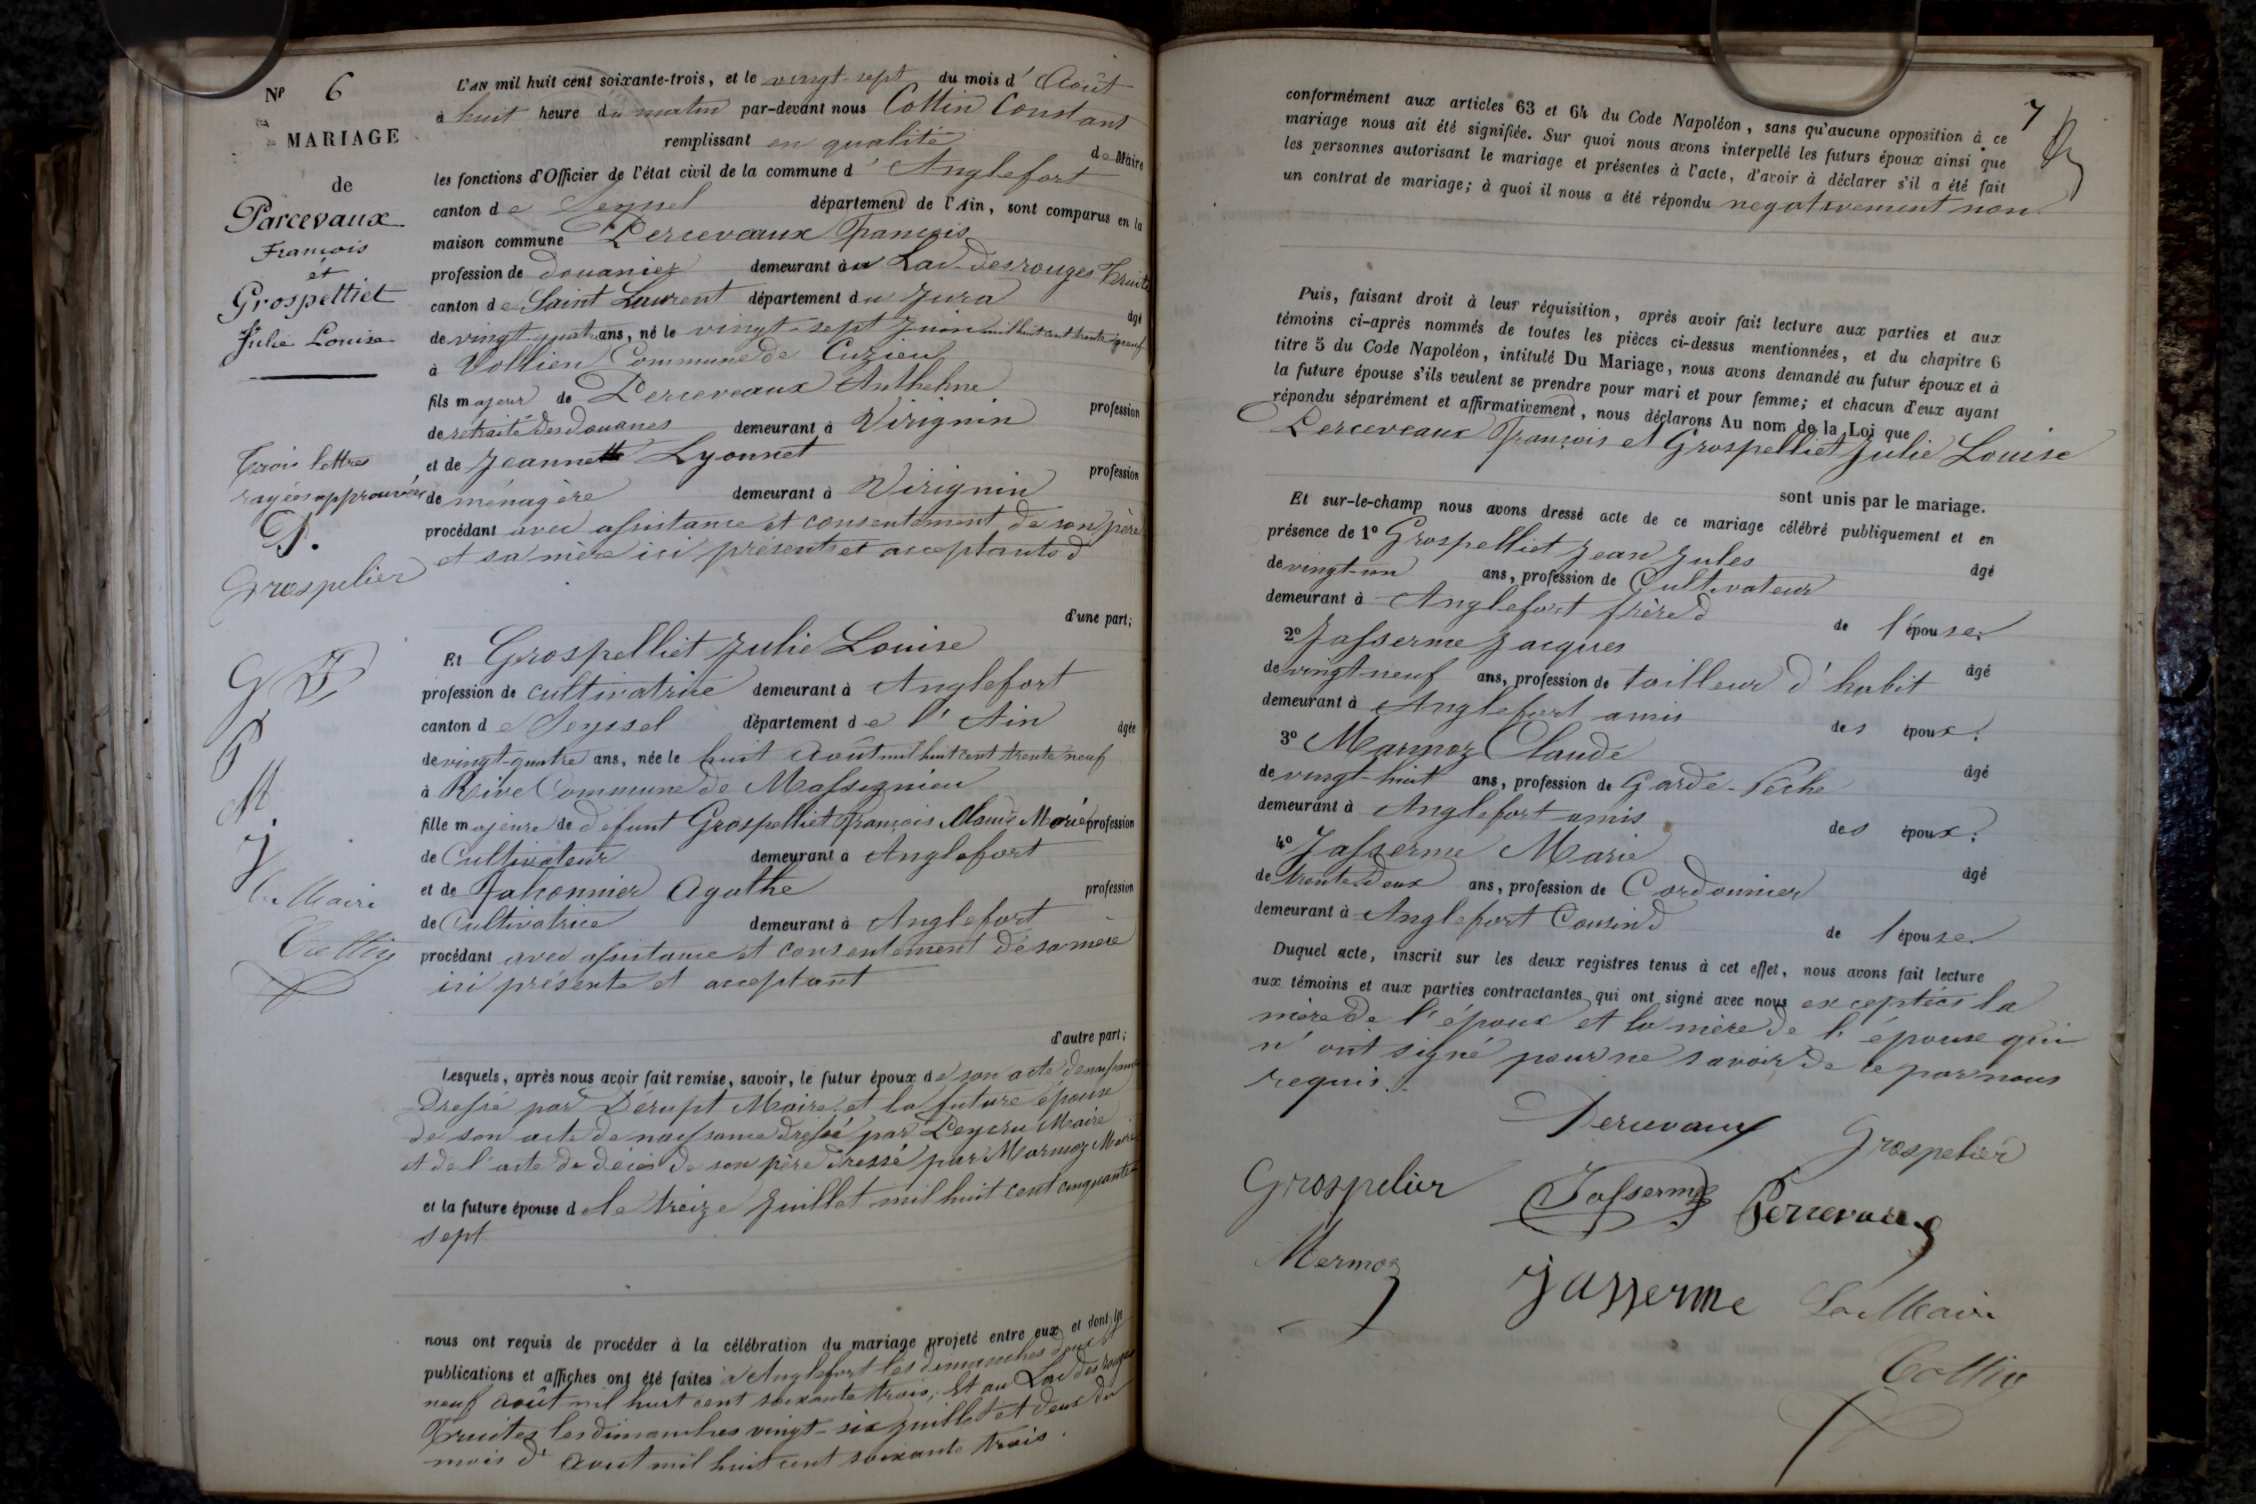 Nº 6
MARIAGE
de
Parcevaux
François
et
Grospelliet
Julie Louise
Trois lettres
rayées approuvées
P.
Grospelier
G P
P
M
J
Le Maire
Collin
L'AN mil huit cent soixante-trois, et le vingt-sept du mois d'Août
à huit heure du matin par-devant nous Collin Constant
remplissant en qualité de Maire
les fonctions d'Officier de l'état civil de la commune d'Anglefort
canton de Seyssel département de l'Ain, sont comparus en la
maison commune Perceveaux François
profession de douanier demeurant au Lac des rouges Truites
canton de Saint Laurent département du Jura âgé
de vingt-quatre ans, né le vingt-sept Juin mil huit cent trente neuf
à Vollien Commune de Cuzieu
fils majeur de Perceveaux Anthelme profession
de retraité des douanes demeurant à Virignin
et de Jeannette Lyonnet profession
de ménagère demeurant à Virignin
procédant avec assistance et consentement de son père
et sa mère ici présents et acceptants
d'une part;
Et Grospelliet Julie Louise
profession de cultivatrice demeurant à Anglefort
canton de Seyssel département de l'Ain âgée
de vingt-quatre ans, née le huit août mil huit cent trente neuf
à Rive Commune de Massignieu
fille majeure de défunt Grospelliet François Marie profession
de Cultivateur demeurant à Anglefort
et de Falconnier Agathe profession
de Cultivatrice demeurant à Anglefort
procédant avec assistance et consentement de sa mère
ici présente et acceptant
d'autre part;
Lesquels, après nous avoir fait remise, savoir, le futur époux de son acte de naissance
dressé par Derupt Maire, et la future épouse
de son acte de naissance dressé par Peysru Maire
et de l'acte de décès de son père dressé par Marmoz Maire
et la future épouse d le treize Juillet mil huit cent cinquante
sept
nous ont requis de procéder à la célébration du mariage projeté entre eux et dont les
publications et affiches ont été faites à Anglefort les dimanches deux et
neuf août mil huit cent soixante trois; Et au Lac des rouges
Truites les dimanches vingt-six juillet et deux du
mois d'août mil huit cent soixante trois.
7
conformément aux articles 63 et 64 du Code Napoléon, sans qu'aucune opposition à ce
mariage nous ait été signifiée. Sur quoi nous avons interpellé les futurs époux ainsi que
les personnes autorisant le mariage et présentes à l'acte, d'avoir à déclarer s'il a été fait
un contrat de mariage; à quoi il nous a été répondu negativement non
Puis, faisant droit à leur réquisition, après avoir fait lecture aux parties et aux
témoins ci-après nommés de toutes les pièces ci-dessus mentionnées, et du chapitre 6
titre 5 du Code Napoléon, intitulé Du Mariage, nous avons demandé au futur époux et à
la future épouse s'ils veulent se prendre pour mari et pour femme; et chacun d'eux ayant
répondu séparément et affirmativement, nous déclarons Au nom de la Loi que
Perceveaux François et Grospelliet Julie Louise
sont unis par le mariage.
Et sur-le-champ nous avons dressé acte de ce mariage célébré publiquement et en
présence de 1º Grospelliet Jean Jules âgé
de vingt-un ans, profession de Cultivateur
demeurant à Anglefort frère de l'épouse.
2º Jasserme Jacques âgé
de vingt-neuf ans, profession de tailleur d'habit
demeurant à Anglefort amis des époux.
3º Marmoz Claude âgé
de vingt-huit ans, profession de Garde-Pêche
demeurant à Anglefort amis des époux.
4º Jasserme Marie âgé
de trente-deux ans, profession de Cordonnier
demeurant à Anglefort Cousin de l'épouse
Duquel acte, inscrit sur les deux registres tenus à cet effet, nous avons fait lecture
aux témoins et aux parties contractantes qui ont signé avec nous exceptées la
mère de l'époux et la mère de l'épouse qui
n'ont signé pour ne savoir de ce par nous
requis.
Percevaux Grospelier
Grospelier Jasserme Percevaux
Mermoz Jasserme Le Maire
Collin